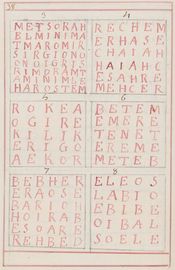 38
3
METSORAH
ELMINIMA
TMAROMIR
SIRGIONO
ONOIGRIS
RIMORAMT
AMINIMLE
HAROSTEM
4
RECHEM
ERHASE
CHAIAH
HAIAHC
ESAHRE
MEHCER
5
ROKEA
OGIRE
KILIK
ERIGO
AEKOR
6
BETEM
EMERE
TENET
EREME
METEB
7
BEBHER
ERAOSE
BARICH
HOIRAB
ESOARE
REHBED
8
ELEOS
LABIO
EBIBE
OIBAL
SOELE